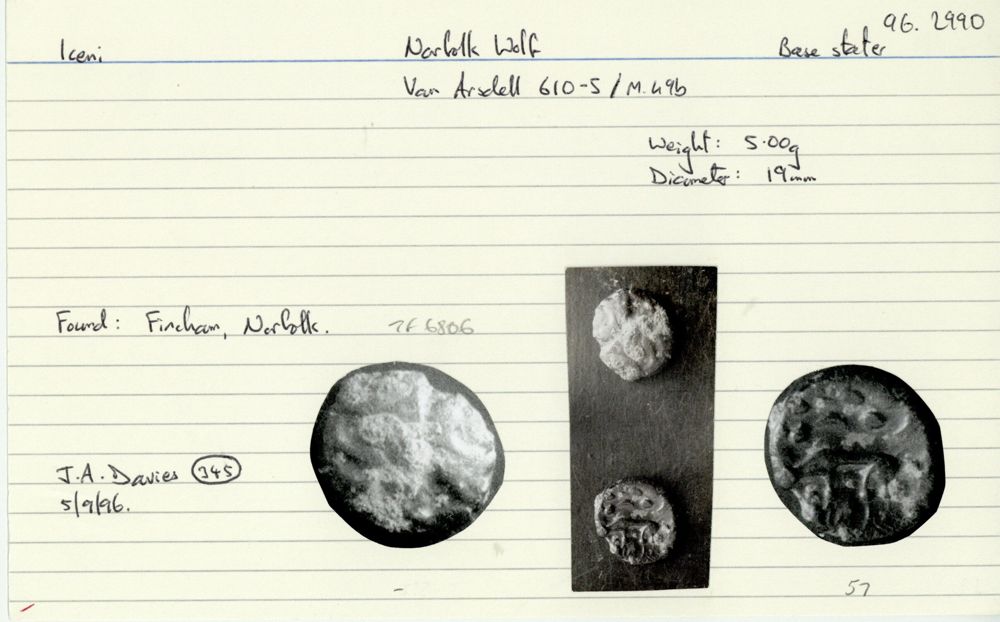 96. 2990
Iceni Norfolk Wolf Base stater
Van Arsdell 610-5 / M.49b
Weight: 5.00g
Diameter: 19mm
Found: Fincham, Norfolk. TF 6806
J.A. Davies 345
5/9/96.
- 57